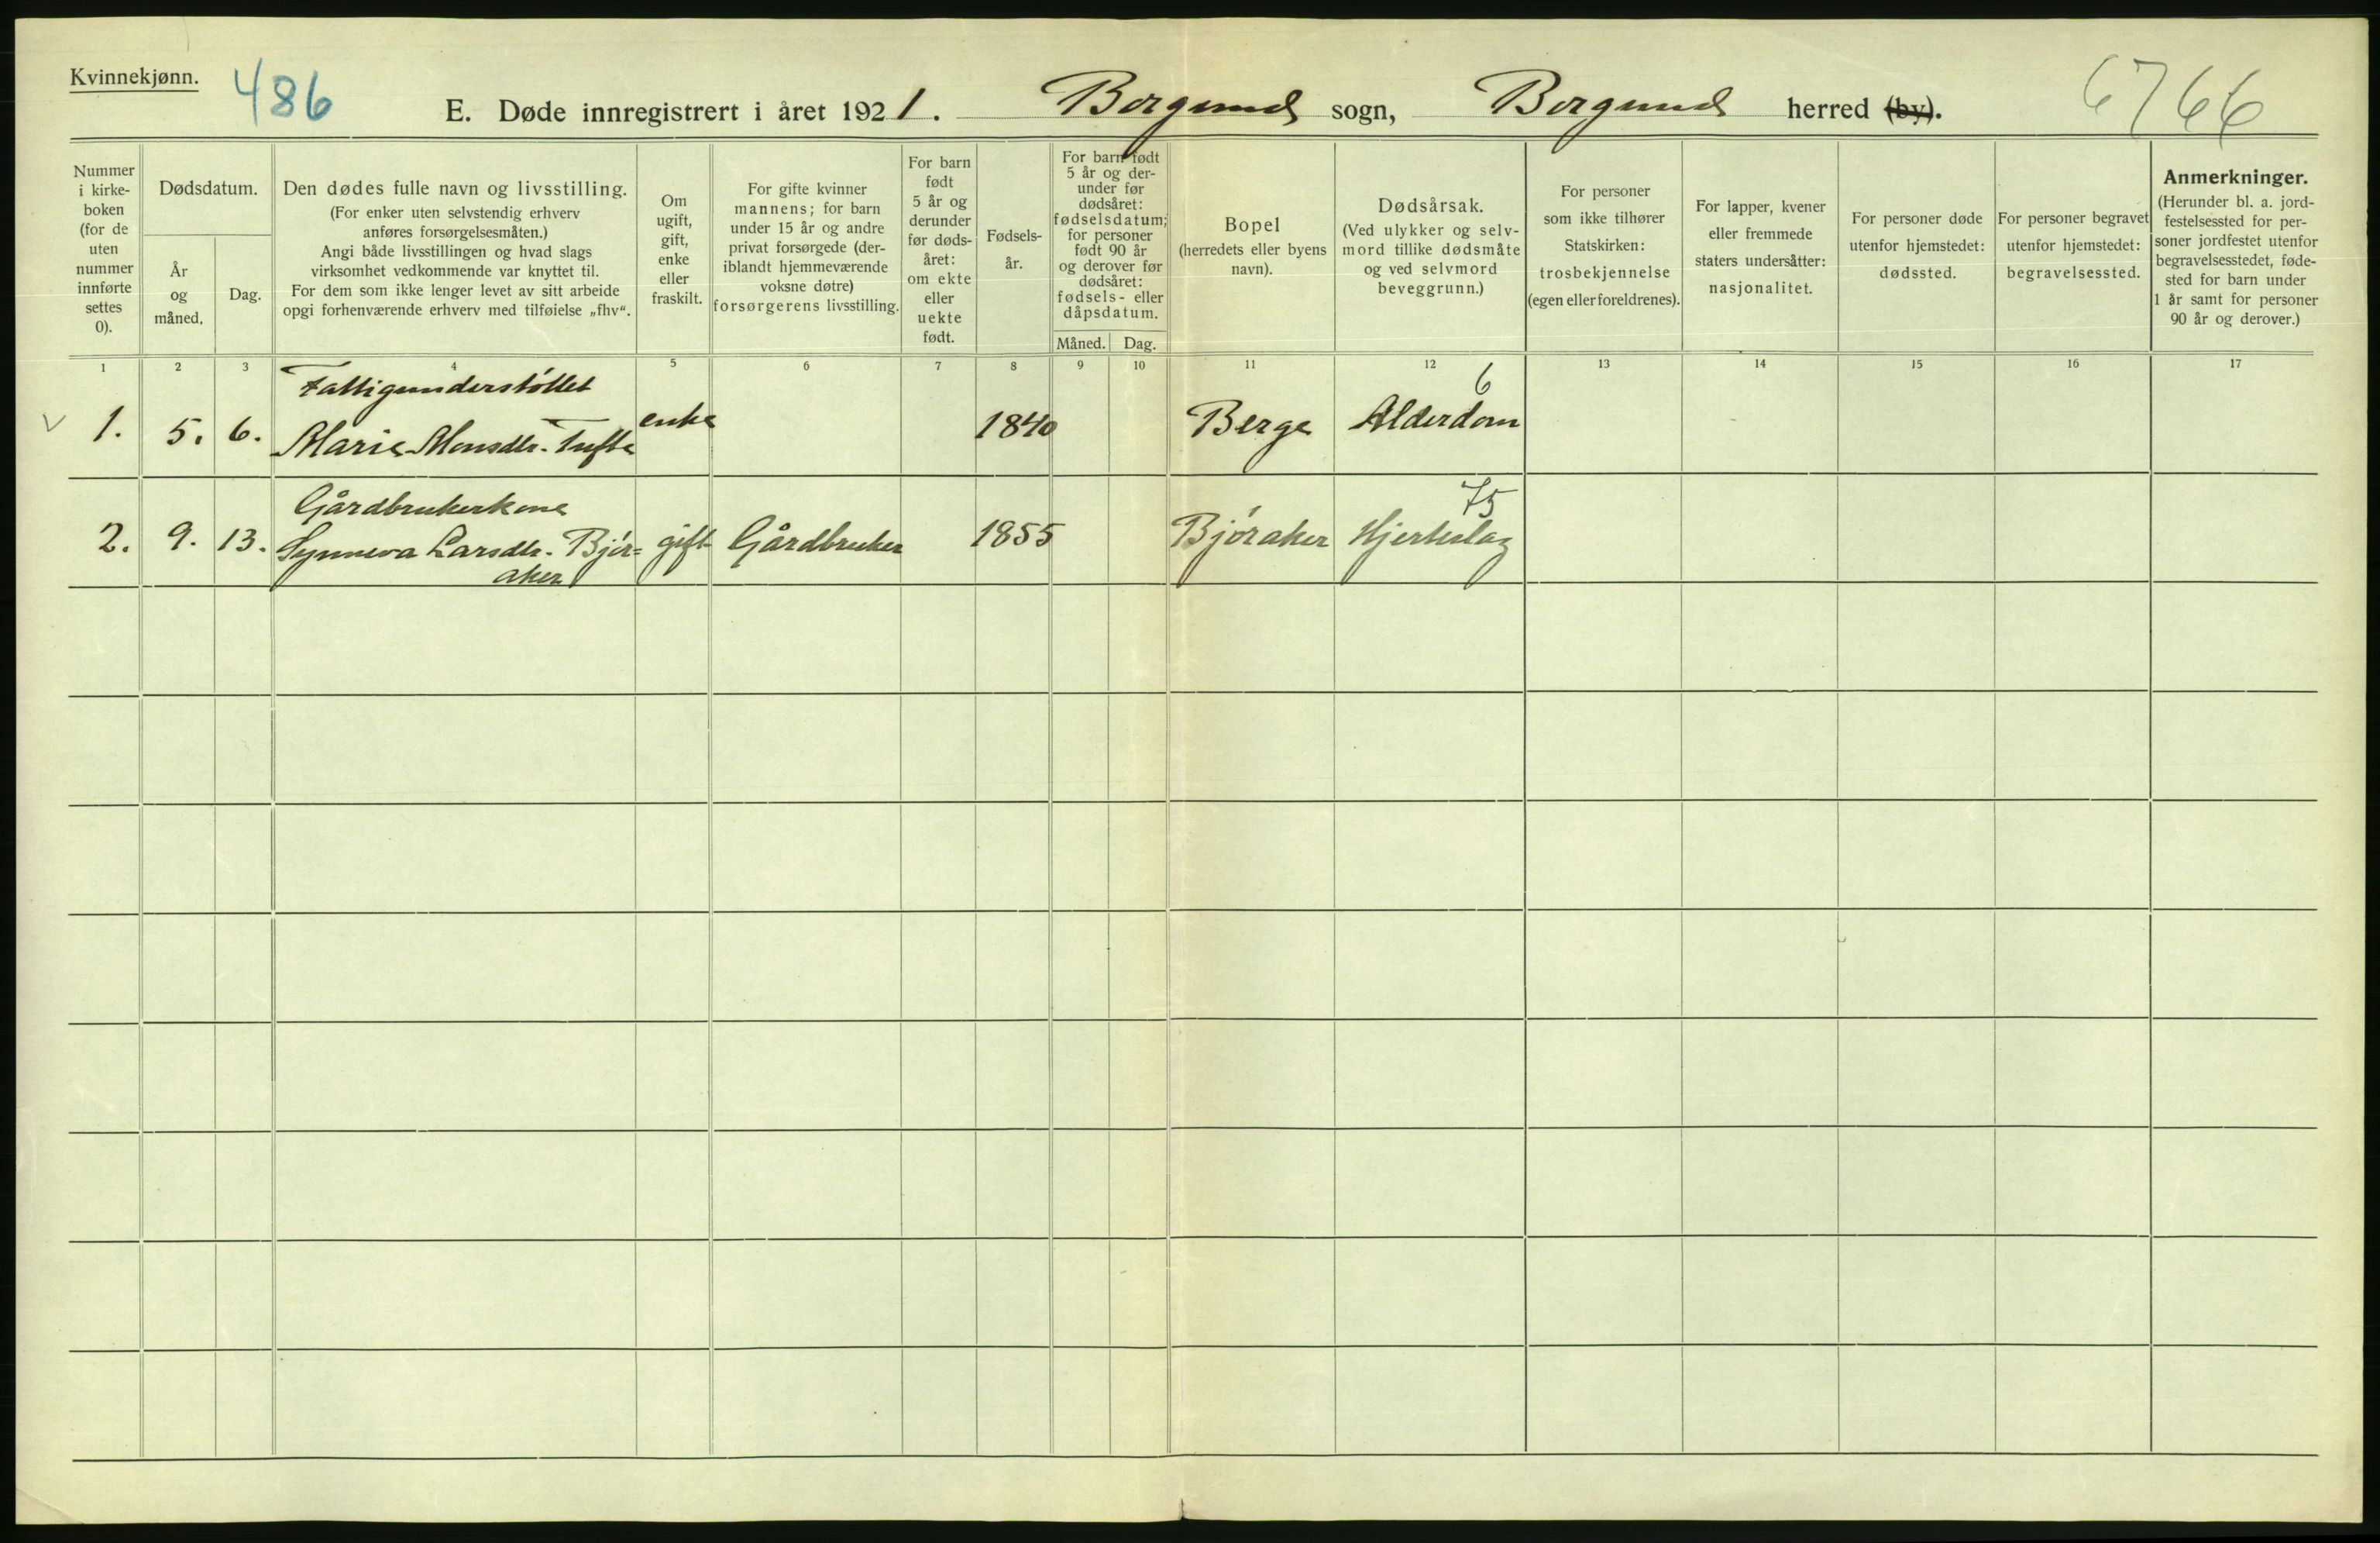 Kvinnekjønn.
486
E. Døde innregistrert i året 1921. Borgund sogn, Borgund herred (by).
6766
Nummer
i kirke-
boken
(for de
uten
nummer
innførte
settes
0).
Dødsdatum.
År
og
måned.
Dag.
Den dødes fulle navn og livsstilling.
(For enker uten selvstendig erhverv
anføres forsørgelsesmåten.)
Angi både livsstillingen og hvad slags
virksomhet vedkommende var knyttet til.
For dem som ikke lenger levet av sitt arbeide
opgi forhenværende erhverv med tilføielse „fhv“.
Om
ugift,
gift,
enke
eller
fraskilt.
For gifte kvinner
mannens; for barn
under 15 år og andre
privat forsørgede (der-
iblandt hjemmeværende
voksne døtre)
forsørgerens livsstilling.
For barn
født
5 år og
derunder
før døds-
året:
om ekte
eller
uekte
født.
Fødsels-
år.
For barn født
5 år og der-
under før
dødsåret:
fødselsdatum;
for personer
født 90 år
og derover før
dødsåret:
fødsels- eller
dåpsdatum.
Måned. Dag.
Bopel
(herredets eller byens
navn).
Dødsårsak.
(Ved ulykker og selv-
mord tillike dødsmåte
og ved selvmord
beveggrunn.)
For personer
som ikke tilhører
Statskirken:
trosbekjennelse
(egen eller foreldrenes).
For lapper, kvener
eller fremmede
staters undersåtter:
nasjonalitet.
For personer døde
utenfor hjemstedet:
dødssted.
For personer begravet
utenfor hjemstedet:
begravelsessted.
Anmerkninger.
(Herunder bl. a. jord-
festelsessted for per-
soner jordfestet utenfor
begravelsesstedet, føde-
sted for barn under
1 år samt for personer
90 år og derover.)
1 2 3 4 5 6 7 8 9 10 11 12 13 14 15 16 17
Fattigunderstøttet 6
v 1. 5. 6. Marie Monsdtr. Tufte enke 1840 Berge Alderdom
Gårdbrukerkone 75
2. 9. 13. Synneva Larsdtr. Bjør= gift Gårdbruker 1855 Bjøraker Hjerteslag
aker